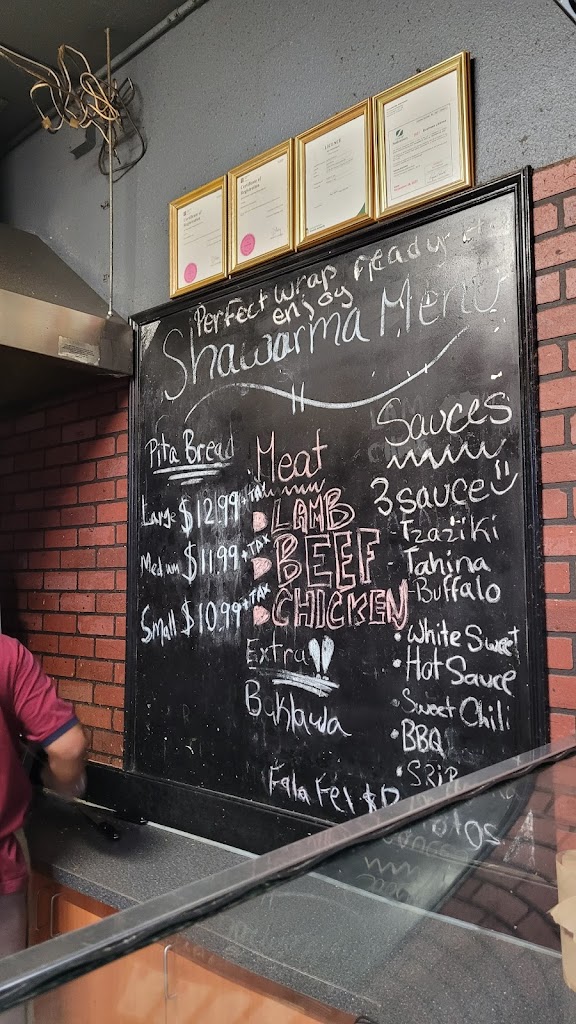 Perfect wrap ready
enjoy
Shawarma Menu
Pita Bread
Large $12.99 + TAX
Medium $11.99 + TAX
Small $10.99 + TAX
Meat
LAMB
BEEF
CHICKEN
Extra!!
Baklawa
Falafel
Sauces
3 sauce
- Tzaziki
- Tahina
- Buffalo
• White Sweet
• Hot Sauce
• Sweet Chili
• BBQ